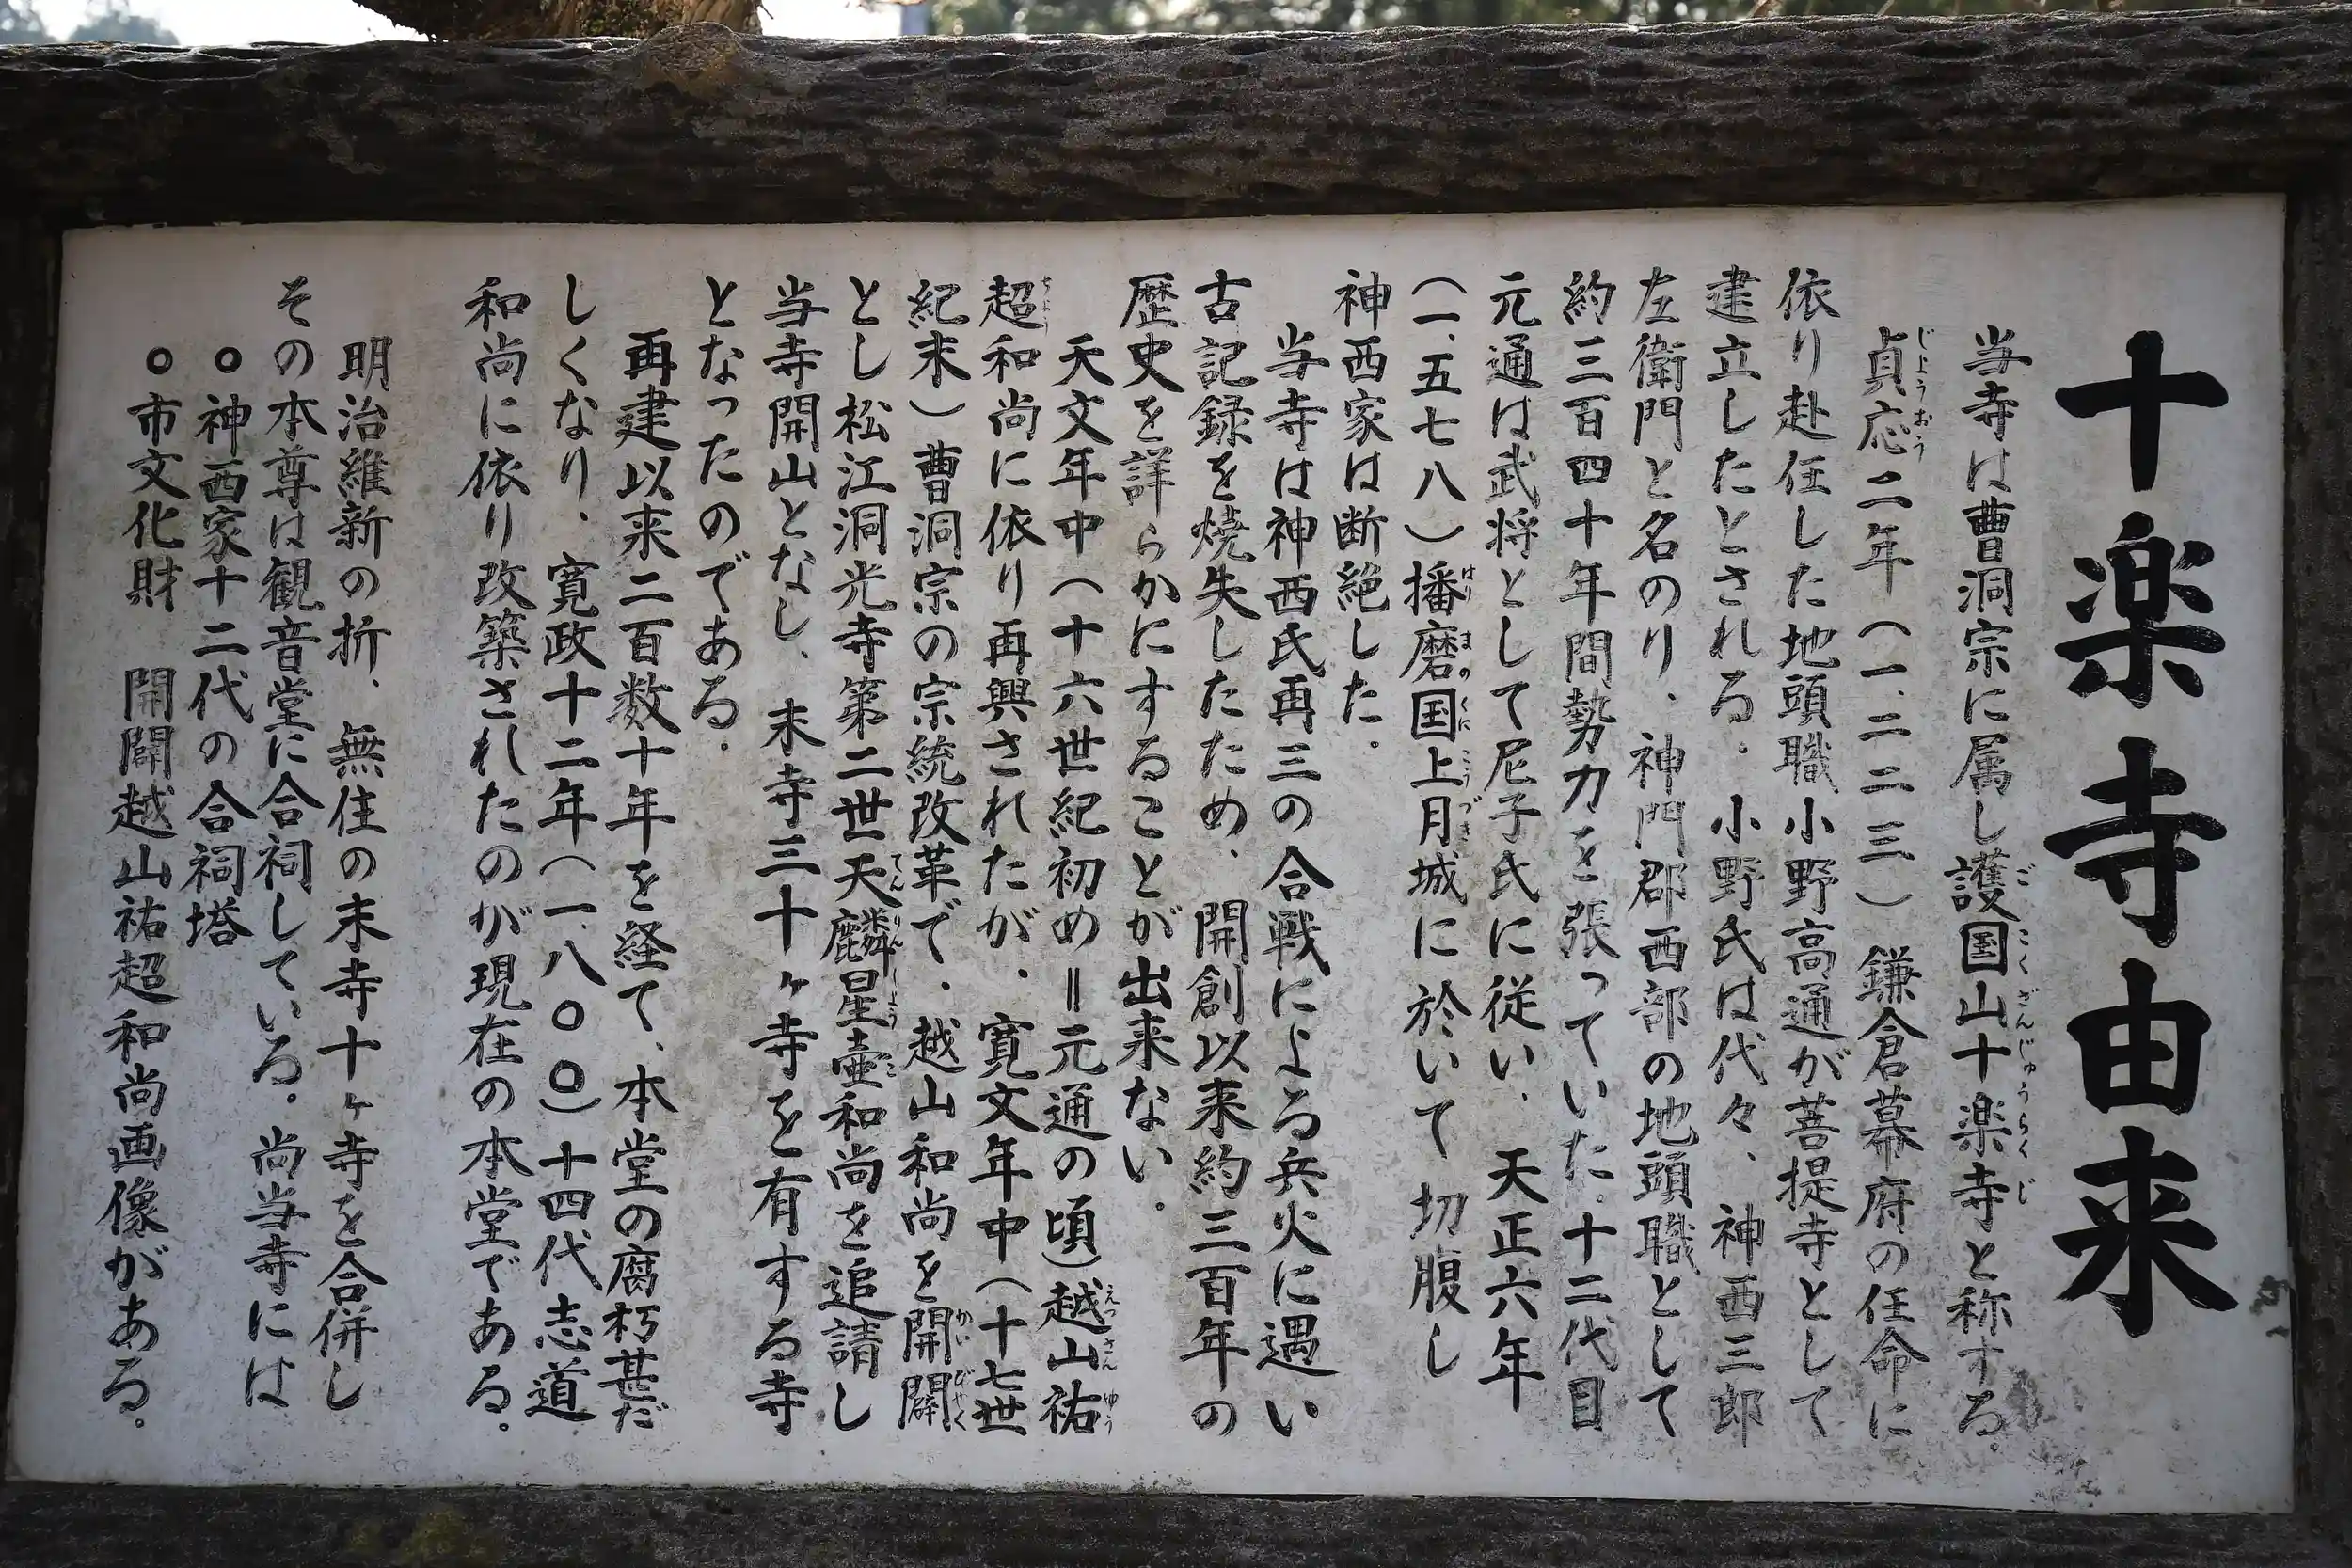 十楽寺由来
当寺は曹洞宗に属し護国山十楽寺と称する。
貞応二年（一、二二三）鎌倉幕府の任命に
依り赴任した地頭職小野高通が菩提寺として
建立したとされる。小野氏は代々、神西三郎
左衛門と名のり、神門郡西部の地頭職として
約三百四十年間勢力を張っていた。十二代目
元通は武将として尼子氏に従い、天正六年
（一、五七八）播磨国上月城に於いて切腹し
神西家は断絶した。
当寺は神西氏再三の合戦による兵火に遇い
古記録を焼失したため、開創以来約三百年の
歴史を詳らかにすることが出来ない。
天文年中（十六世紀初め＝元通の頃）越山祐
超和尚に依り再興されたが、寛文年中（十七世
紀末）曹洞宗の宗統改革で、越山和尚を開闢
とし松江洞光寺第二世天麟星壺和尚を追請し
当寺開山となし、末寺三十ヶ寺を有する寺
となったのである。
再建以来二百数十年を経て、本堂の腐朽甚だ
しくなり、寛政十二年（一、八〇〇）十四代志道
和尚に依り改築されたのが現在の本堂である。
明治維新の折、無住の末寺十ヶ寺を合併し
その本尊は観音堂に合祠している。尚当寺には
○神西家十二代の合祠塔
○市文化財　開闢越山祐超和尚画像がある。